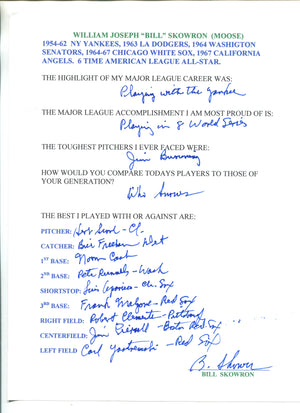 WILLIAM JOSEPH "BILL" SKOWRON (MOOSE)
1954-62 NY YANKEES, 1963 LA DODGERS, 1964 WASHIGTON
SENATORS, 1964-67 CHICAGO WHITE SOX, 1967 CALIFORNIA
ANGELS. 6 TIME AMERICAN LEAGUE ALL-STAR.
THE HIGHLIGHT OF MY MAJOR LEAGUE CAREER WAS:
Playing with the Yankees
THE MAJOR LEAGUE ACCOMPLISHMENT I AM MOST PROUD IS:
Playing in 8 World Series
THE TOUGHEST PITCHERS I EVER FACED WERE:
Jim Bunning
HOW WOULD YOU COMPARE TODAYS PLAYERS TO THOSE OF
YOUR GENERATION?
Who knows
THE BEST I PLAYED WITH OR AGAINST ARE:
PITCHER: Herb Score - Cl.
CATCHER: Bill Freehan Det
1ST BASE: Norm Cash
2ND BASE: Pete Runnels - Wash
SHORTSTOP: Luis Aparicio - Chi. Sox
3RD BASE: Frank Malzone - Red Sox
RIGHT FIELD: Robert Clemente -
CENTERFIELD: Jim Piersall - Boston Red Sox
LEFT FIELD Carl Yastremski - Red Sox
B. Skowron
BILL SKOWRON